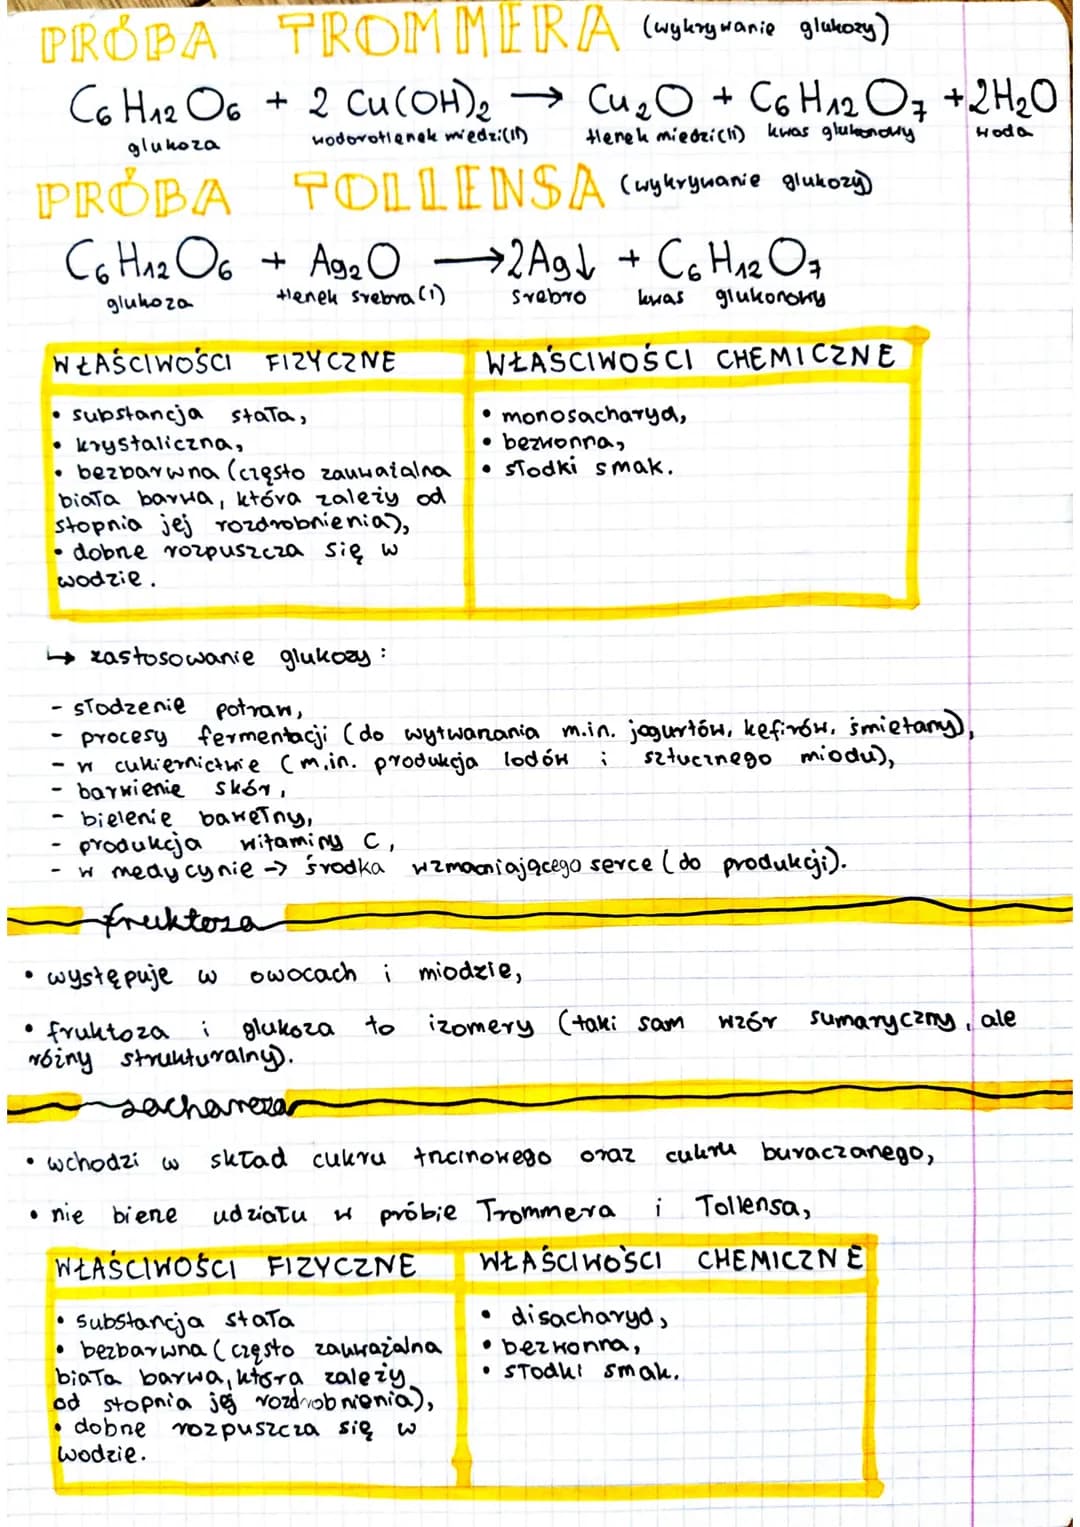 PRÓBA TROMMERA (wykrywanie glukozy)
C6H12O6 + 2 Cu(OH)2 → Cu2O + C6H12O7 + 2H2O
glukoza wodorotlenek miedzi(II) tlenek miedzi(I) kwas glukonowy woda
PRÓBA TOLLENSA (wykrywanie glukozy)
C6H12O6 + Ag2O → 2Ag↓ + C6H12O7
glukoza tlenek srebra(I) srebro kwas glukonowy
WŁAŚCIWOŚCI FIZYCZNE WŁAŚCIWOŚCI CHEMICZNE
• substancja stała,
• krystaliczna,
• bezbarwna (często zauważalna
biała barwa, która zależy od
stopnia jej rozdrobnienia),
• dobrze rozpuszcza się w
wodzie.
• monosacharyd,
• bezwonna,
• słodki smak.
↳ zastosowanie glukozy:
- słodzenie potraw,
- procesy fermentacji (do wytwarzania m.in. jogurtów, kefirów, śmietany),
- w cukiernictwie (m.in. produkcja lodów i sztucznego miodu),
- barwienie skór,
- bielenie bawełny,
- produkcja witaminy C,
- w medycynie → środka wzmacniającego serce (do produkcji).
fruktoza
• występuje w owocach i miodzie,
• fruktoza i glukoza to izomery (taki sam wzór sumaryczny, ale
różny strukturalny).
sacharoza
• wchodzi w skład cukru trzcinowego oraz cukru buraczanego,
• nie bierze udziału w próbie Trommera i Tollensa,
WŁAŚCIWOŚCI FIZYCZNE WŁAŚCIWOŚCI CHEMICZNE
• substancja stała
• bezbarwna (często zauważalna
biała barwa, która zależy
od stopnia jej rozdrobnienia),
• dobrze rozpuszcza się w
wodzie.
• disacharyd,
• bezwonna,
• słodki smak.